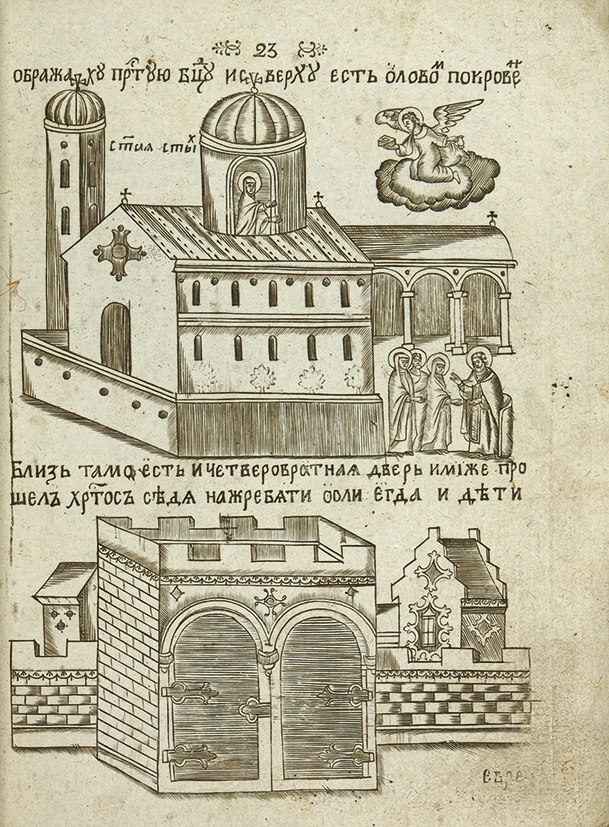 23
ѡбража҆ху прⷭ҇тую бцⷣу исъверху есть ѻловоⷨ покровеⷩ
стаѧ стыⷯ
Близь тамѡ єсть и четверовратная дверь имiже про
шелъ хртⷭосъ сѣдя на жребяти ѻсли єгда и дѣти